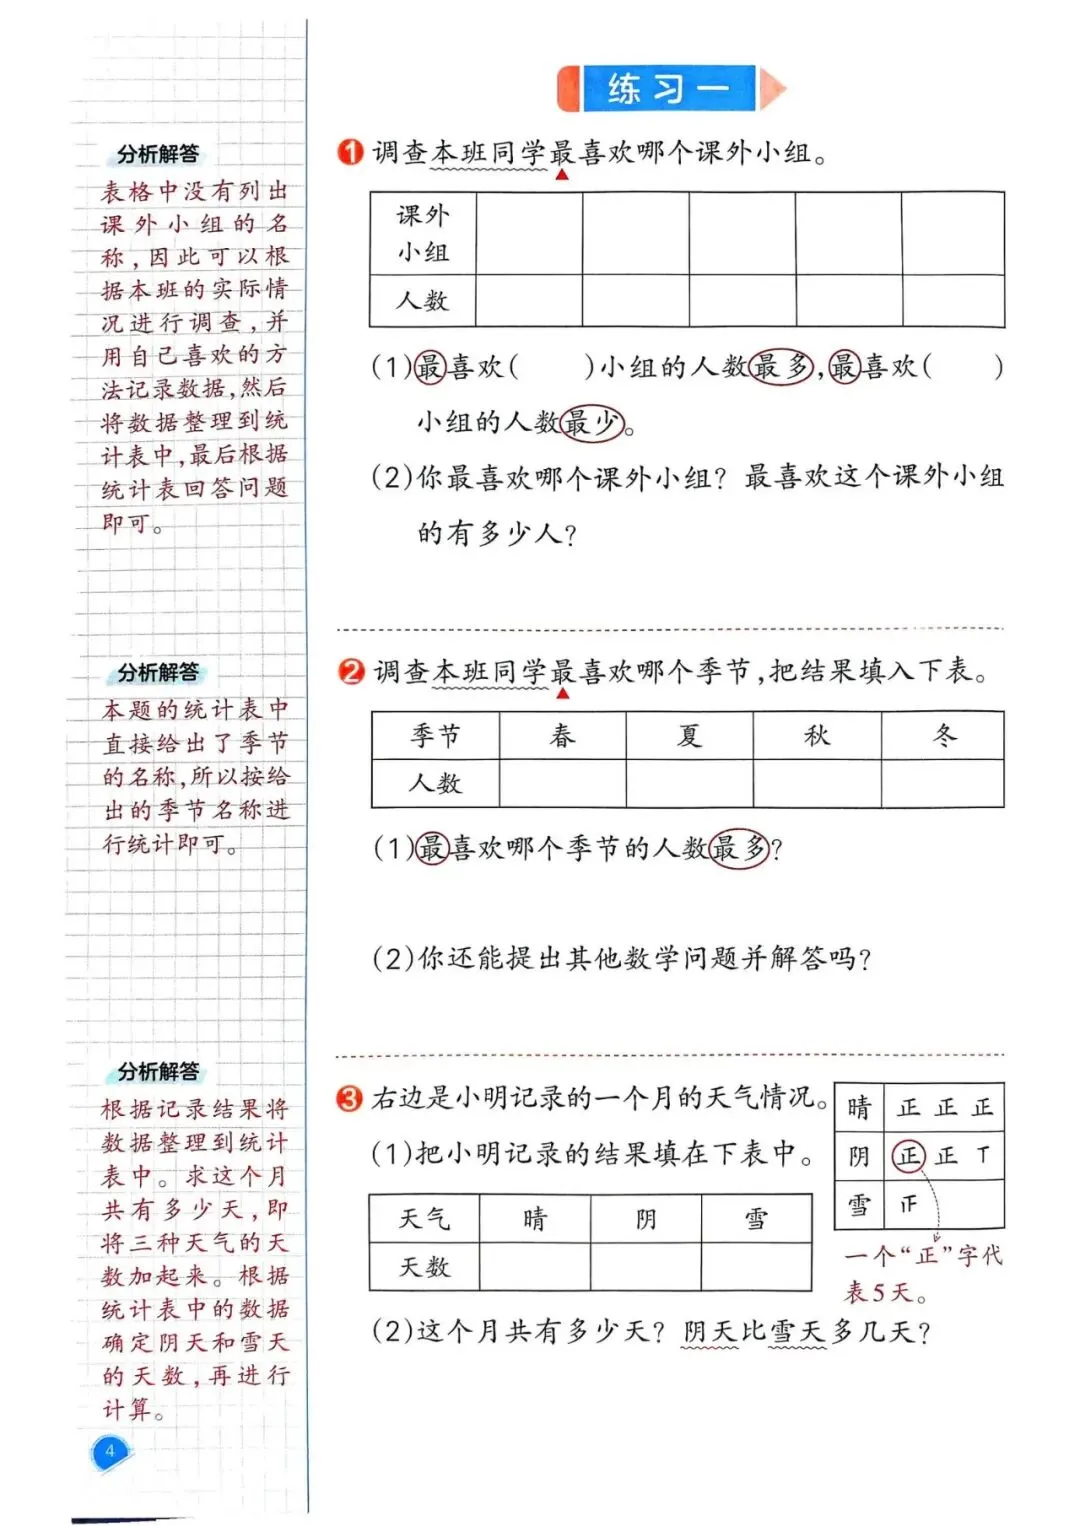 练习一
分析解答
表格中没有列出
课外小组的名
称,因此可以根
据本班的实际情
况进行调查,并
用自己喜欢的方
法记录数据,然后
将数据整理到统
计表中,最后根据
统计表回答问题
即可。
1 调查本班同学最喜欢哪个课外小组。
课外
小组
人数
(1)最喜欢(    )小组的人数最多,最喜欢(    )
小组的人数最少。
(2)你最喜欢哪个课外小组？最喜欢这个课外小组
的有多少人?
分析解答
本题的统计表中
直接给出了季节
的名称,所以按给
出的季节名称进
行统计即可。
2 调查本班同学最喜欢哪个季节,把结果填入下表。
季节 春 夏 秋 冬
人数
(1)最喜欢哪个季节的人数最多?
(2)你还能提出其他数学问题并解答吗?
分析解答
根据记录结果将
数据整理到统计
表中。求这个月
共有多少天,即
将三种天气的天
数加起来。根据
统计表中的数据
确定阴天和雪天
的天数,再进行
计算。
3 右边是小明记录的一个月的天气情况。
晴 正 正 正
阴 正 正 丅
雪 𤴓
一个“正”字代
表5天。
(1)把小明记录的结果填在下表中。
天气 晴 阴 雪
天数
(2)这个月共有多少天？阴天比雪天多几天?
4